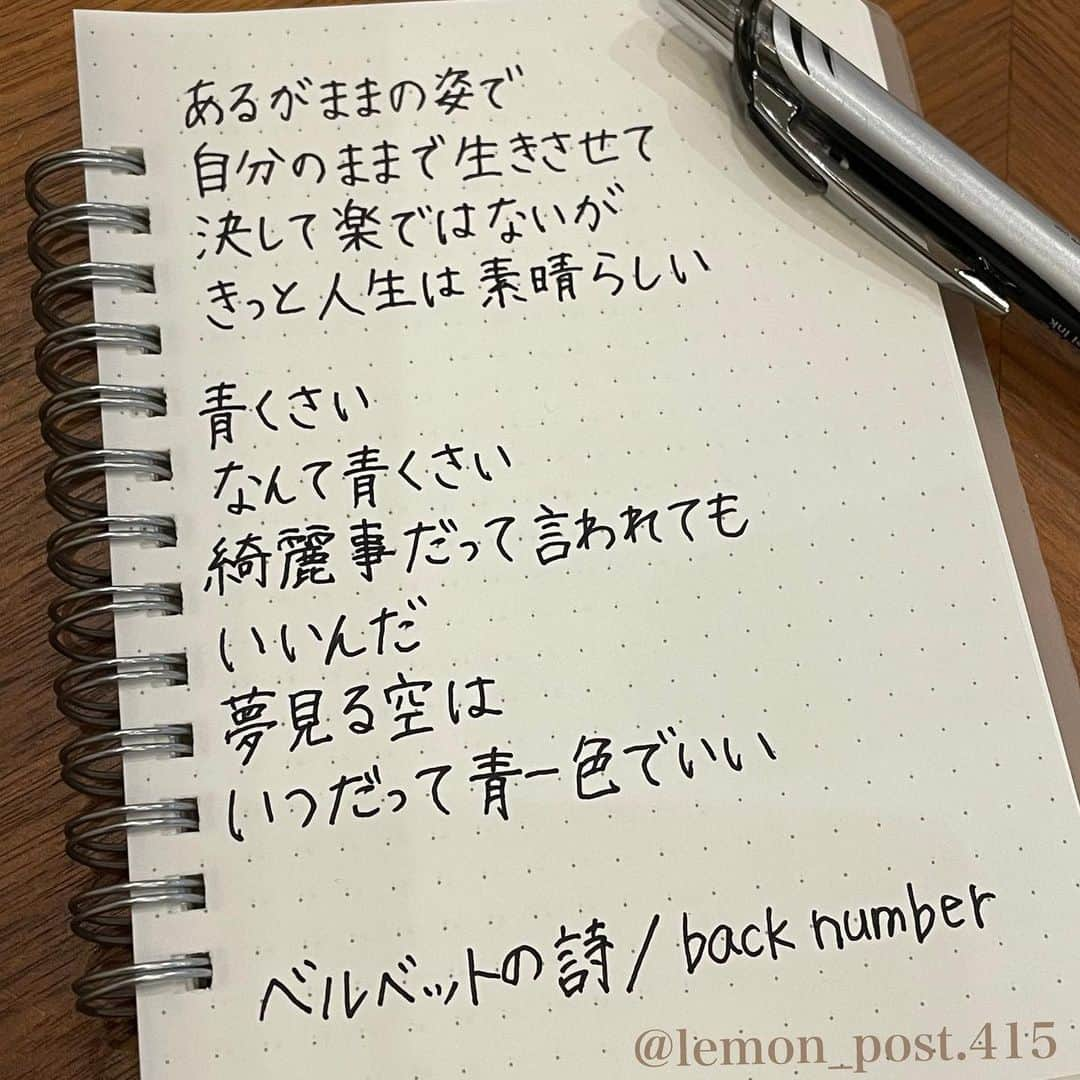 あるがままの姿で
自分のままで生きさせて
決して楽ではないが
きっと人生は素晴らしい
青くさい
なんて青くさい
綺麗事だって言われても
いいんだ
夢見る空は
いつだって青一色でいい
ベルベットの詩/back number
@lemon_post.415